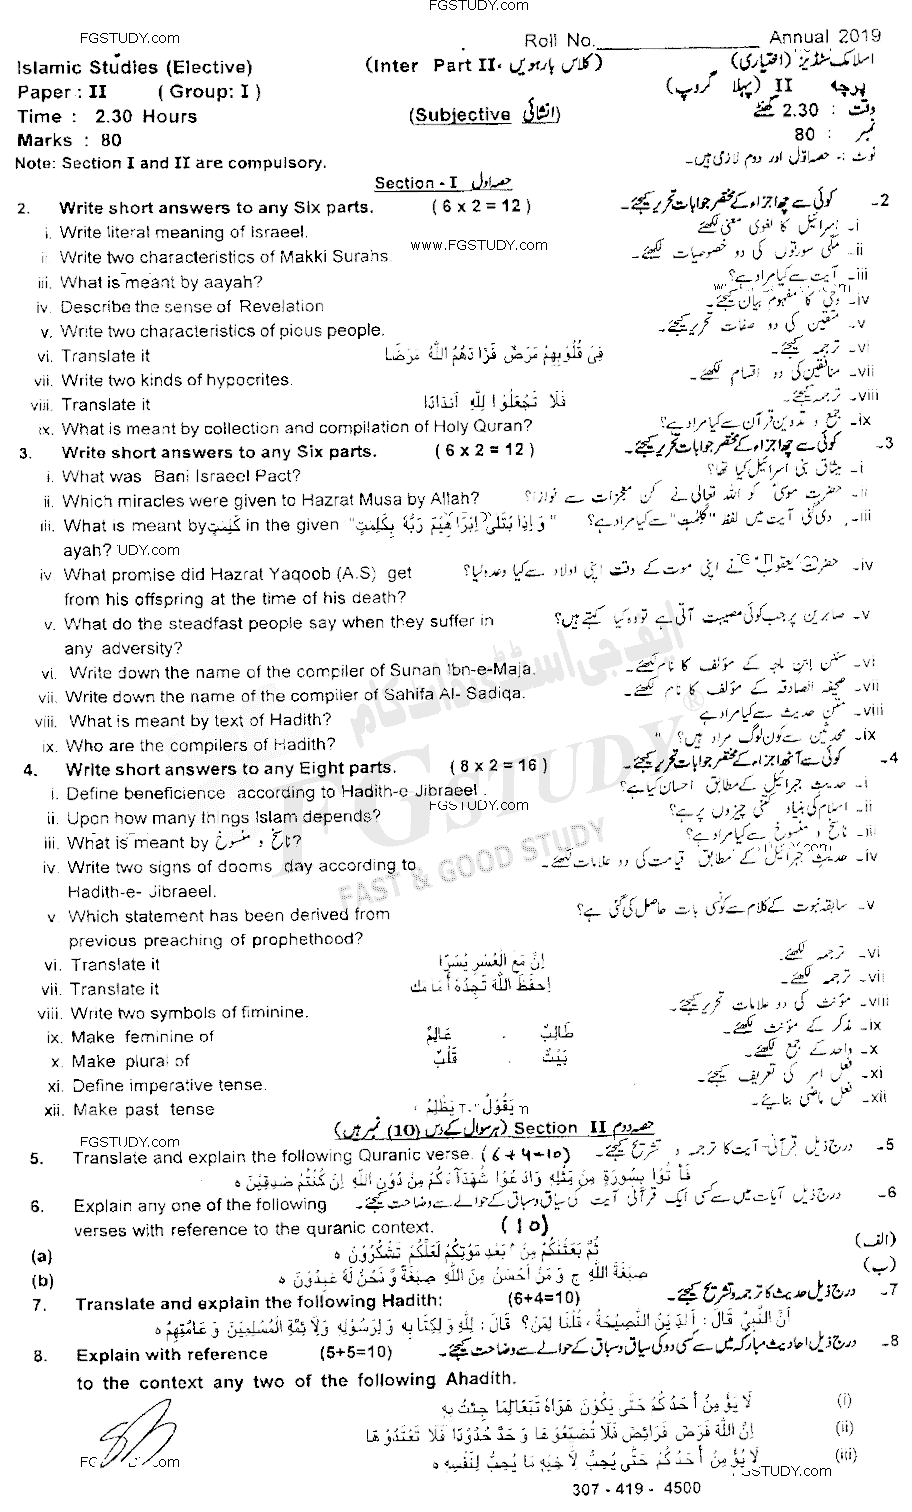 FGSTUDY.com
FGSTUDY.com
Roll No. Annual 2019
Islamic Studies (Elective) (Inter Part II، کلاس بارہویں) اسلامک سٹڈیز (اختیاری)
Paper : II ( Group: I ) پرچہ II (پہلا گروپ)
Time : 2.30 Hours (Subjective انشائی) وقت : 2.30 گھنٹے
Marks : 80 نمبر : 80
Note: Section I and II are compulsory. نوٹ :۔ حصہ اوّل اور دوم لازمی ہیں۔
Section - I حصہ اول
2. Write short answers to any Six parts. ( 6 x 2 = 12 ) 2۔ کوئی سے چھ اجزاء کے مختصر جوابات تحریر کیجئے۔
i. Write literal meaning of Israeel. i۔ اسرائیل کا لغوی معنی لکھئے
www.FGSTUDY.com
ii Write two characteristics of Makki Surahs. ii۔ مکی سورتوں کی دو خصوصیات لکھئے۔
iii. What is meant by aayah? iii۔ آیت سے کیا مراد ہے؟
iv. Describe the sense of Revelation iv۔ وحی کا مفہوم بیان کیجئے۔
v. Write two characteristics of pious people. v۔ متقین کی دو صفات تحریر کیجئے۔
vi. Translate it فِیْ قُلُوْبِهِمْ مَرَضٌ فَزَادَهُمُ اللّٰهُ مَرَضًا vi۔ ترجمہ کیجئے۔
vii. Write two kinds of hypocrites. vii۔ منافقین کی دو اقسام لکھئے۔
viii. Translate it فَلَا تَجْعَلُوْا لِلّٰهِ اَنْدَادًا viii۔ ترجمہ کیجئے۔
ix. What is meant by collection and compilation of Holy Quran? ix۔ جمع و تدوین قرآن سے کیا مراد ہے؟
3. Write short answers to any Six parts. ( 6 x 2 = 12 ) 3۔ کوئی سے چھ اجزاء کے مختصر جوابات تحریر کیجئے۔
i. What was Bani Israeel Pact? i۔ میثاق بنی اسرائیل کیا تھا؟
ii. Which miracles were given to Hazrat Musa by Allah? ii۔ حضرت موسیٰ کو اللہ تعالیٰ نے کن معجزات سے نوازا؟
iii. What is meant by كَلِمٰتٍ in the given "وَاِذِابْتَلٰى اِبْرَاهِيْمَ رَبُّهٗ بِكَلِمٰتٍ" iii۔ دی گئی آیت میں لفظ "كَلِمٰتٍ" سے کیا مراد ہے؟
ayah? UDY.com
iv What promise did Hazrat Yaqoob (A.S) get iv۔ حضرت یعقوب نے اپنی موت کے وقت اپنی اولاد سے کیا وعدہ لیا؟
from his offspring at the time of his death?
v. What do the steadfast people say when they suffer in v۔ صابرین پر جب کوئی مصیبت آتی ہے تو وہ کیا کہتے ہیں؟
any adversity?
vi. Write down the name of the compiler of Sunan Ibn-e-Maja. vi۔ سنن ابن ماجہ کے مؤلف کا نام لکھئے۔
vii. Write down the name of the compiler of Sahifa Al- Sadiqa. vii۔ صحیفہ الصادقہ کے مؤلف کا نام لکھئے۔
viii. What is meant by text of Hadith? viii۔ متن حدیث سے کیا مراد ہے
ix. Who are the compilers of Hadith? ix۔ محدثین سے کون لوگ مراد ہیں؟
4. Write short answers to any Eight parts. ( 8 x 2 = 16 ) 4۔ کوئی سے آٹھ اجزاء کے مختصر جوابات تحریر کیجئے۔
i. Define beneficience according to Hadith-e Jibraeel . i۔ حدیث جبرائیل کے مطابق احسان کیا ہے؟
FGSTUDY.com
ii. Upon how many things Islam depends? ii۔ اسلام کی بنیاد کتنی چیزوں پر ہے؟
iii. What is meant by ناسخ و منسوخ? iii۔ ناسخ و منسوخ سے کیا مراد ہے؟
iv. Write two signs of dooms day according to iv۔ حدیث جبرائیل کے مطابق قیامت کی دو علامات لکھئے۔
Hadith-e- Jibraeel.
v Which statement has been derived from v۔ سابقہ نبوت کے کلام سے کونسی بات حاصل کی گئی ہے؟
previous preaching of prophethood?
vi. Translate it اِنَّ مَعَ الْعُسْرِ يُسْرًا vi۔ ترجمہ لکھئے۔
vii. Translate it اِحْفَظِ اللّٰهَ تَجِدْهُ اَمَامَك vii۔ ترجمہ لکھئے۔
viii. Write two symbols of fiminine. viii۔ مؤنث کی دو علامات تحریر کیجئے۔
ix. Make feminine of عَالِمٌ . طَالِبٌ ix۔ مذکر کے مؤنث لکھئے۔
x. Make plural of قَلْبٌ . بَيْتٌ x۔ واحد کے جمع لکھئے۔
xi. Define imperative tense. xi۔ فعل امر کی تعریف کیجئے۔
xii. Make past tense يَقُوْلُ . يَظْلِمُ xii۔ فعل ماضی بنائیے۔
Section II حصہ دوم (ہر سوال کے دس (10) نمبر ہیں)
FGSTUDY.com
5. Translate and explain the following Quranic verse. (6+4=10) 5۔ درج ذیل قرآنی آیت کا ترجمہ و تشریح کیجئے۔
فَأْتُوْا بِسُوْرَةٍ مِنْ مِثْلِهٖ وَادْعُوْا شُهَدَآءَكُمْ مِنْ دُوْنِ اللّٰهِ اِنْ كُنْتُمْ صٰدِقِيْنَ ه
6. Explain any one of the following 6۔ درج ذیل آیات میں سے کسی ایک قرآنی آیت کی سیاق و سباق کے حوالے سے وضاحت کیجئے۔
verses with reference to the quranic context. (10)
(a) ثُمَّ بَعَثْنٰكُمْ مِنْ بَعْدِ مَوْتِكُمْ لَعَلَّكُمْ تَشْكُرُوْنَ ه (الف)
(b) صِبْغَةَ اللّٰهِ ج وَمَنْ اَحْسَنُ مِنَ اللّٰهِ صِبْغَةً وَّنَحْنُ لَهٗ عٰبِدُوْنَ ه (ب)
7. Translate and explain the following Hadith: (6+4=10) 7۔ درج ذیل حدیث کا ترجمہ و تشریح کیجئے۔
اَنَّ النَّبِيَّ قَالَ: اَلدِّيْنُ النَّصِيْحَةُ، قُلْنَا لِمَنْ؟ قَالَ: لِلّٰهِ وَلِكِتَابِهٖ وَلِرَسُوْلِهٖ وَلِاَئِمَّةِ الْمُسْلِمِيْنَ وَعَامَّتِهِمْ ه
8. Explain with reference (5+5=10) 8۔ درج ذیل احادیث مبارکہ میں سے کسی دو کی سیاق و سباق کے حوالے سے وضاحت کیجئے۔
to the context any two of the following Ahadith.
لَا يُؤْمِنُ اَحَدُكُمْ حَتّٰى يَكُوْنَ هَوَاهُ تَبَعًا لِمَا جِئْتُ بِهٖ (i)
اِنَّ اللّٰهَ فَرَضَ فَرَائِضَ فَلَا تُضَيِّعُوْهَا وَحَدَّ حُدُوْدًا فَلَا تَعْتَدُوْهَا (ii)
لَا يُؤْمِنُ اَحَدُكُمْ حَتّٰى يُحِبَّ لِاَخِيْهِ مَا يُحِبُّ لِنَفْسِهٖ ه (iii)
FGSTUDY.com
307 - 419 - 4500
ایف جی سٹڈی ڈاٹ کام
FGSTUDY ®
FAST & GOOD STUDY